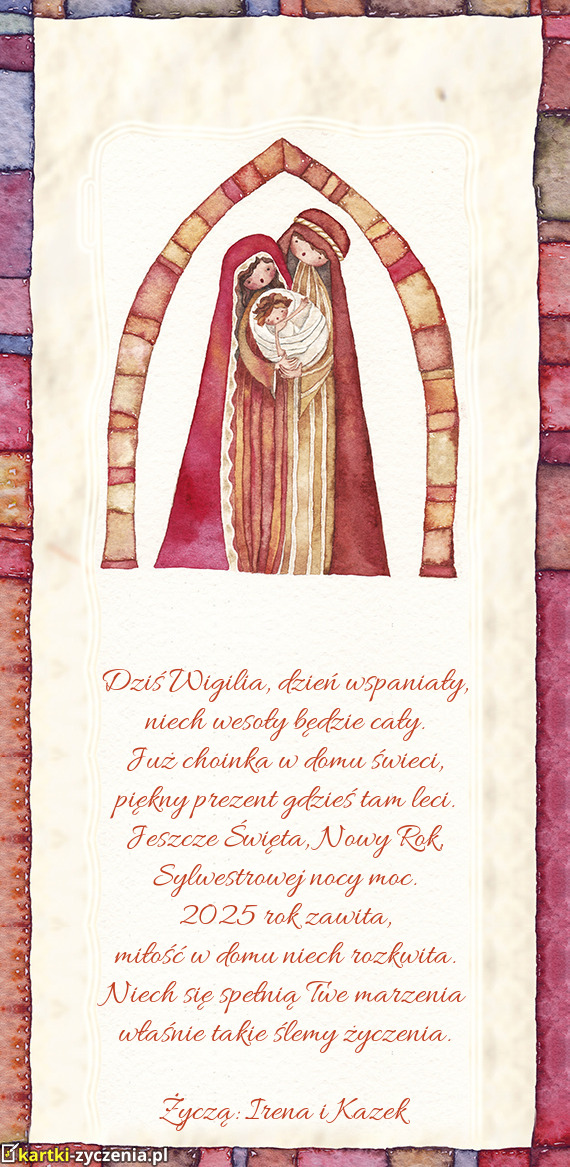 Dziś Wigilia, dzień wspaniały,
niech wesoły będzie cały.
Już choinka w domu świeci,
piękny prezent gdzieś tam leci.
Jeszcze Święta, Nowy Rok,
Sylwestrowej nocy moc.
2025 rok zawita,
miłość w domu niech rozkwita.
Niech się spełnią Twe marzenia
właśnie takie ślemy życzenia.
Życzą: Irena i Kazek
kartki-zyczenia.pl